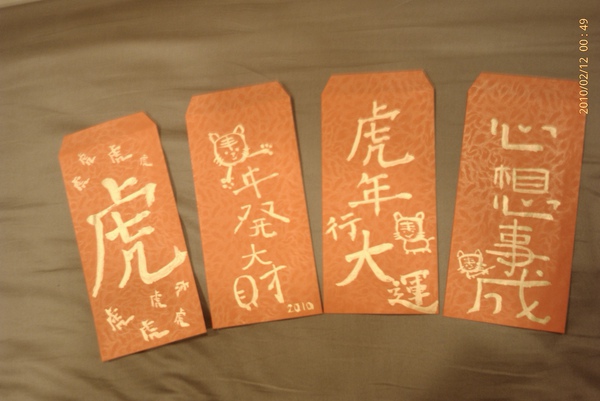 虎
虎
虎
虎
虎
虎
虎
虎
年發大財
2010
虎年
行大運
心想事成
2010/02/12 00:49